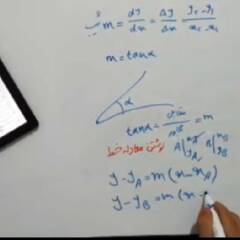 شیب m = dy/dx = Δy/Δx = (y₂ - y₁)/(x₂ - x₁)
m = tanα
α
tanα = مقابل/مجاور = m
نوشتن معادله خط A|x_A y_A B|x_B y_B
y - y_A = m (x - x_A)
y - y_B = m (x -